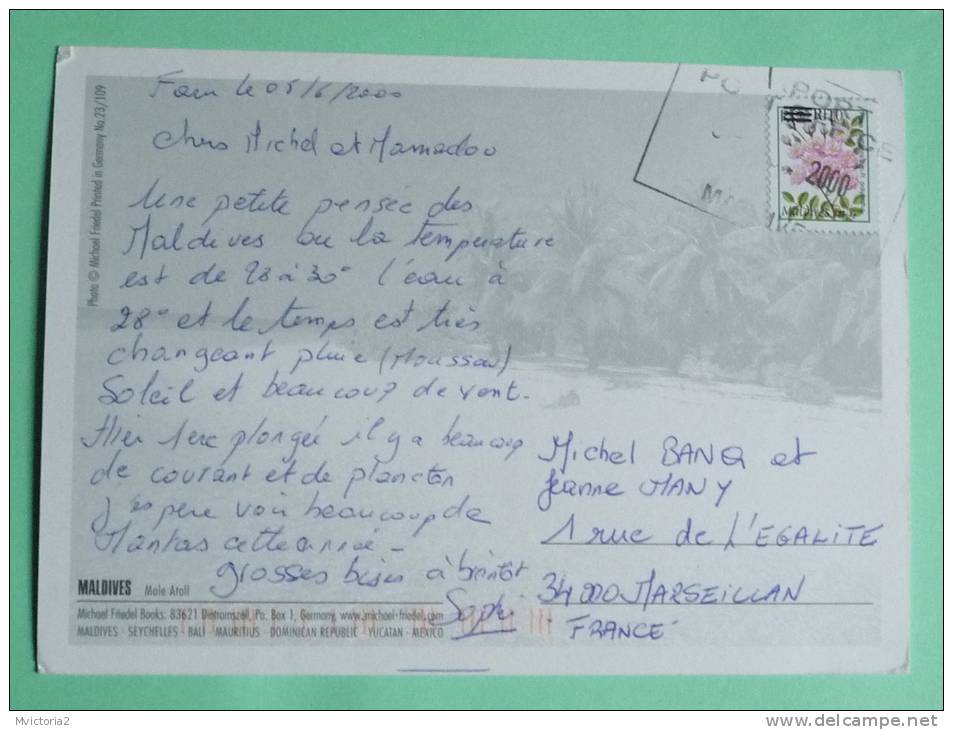 le 05/6/2000
Chers Michel et Mamadou
Une petite pensée des
Maldives ou la température
est de 28 à 30° l'eau à
28° et le temps est très
changeant pluie (Mousson)
Soleil et beaucoup de vent.
Hier 1ere plongée il y a beaucoup
de courant et de plancton
J'espère voir beaucoup de
Mantas cette année -
grosses bises à bientôt
Michel BANQ et
Jeanne MANY
1 rue de L'EGALITE
34000 MARSEILLAN
FRANCE
Photo © Michael Friedel Printed in Germany No.23/109
MALDIVES Male Atoll
Michael Friedel Books: 83621 Dietramszell, Po. Box 1, Germany, www.michael-friedel.com
MALDIVES · SEYCHELLES · BALI · MAURITIUS · DOMINICAN REPUBLIC · YUCATAN · MEXICO
2000
Maldives
Mvictoria2
www.delcampe.net